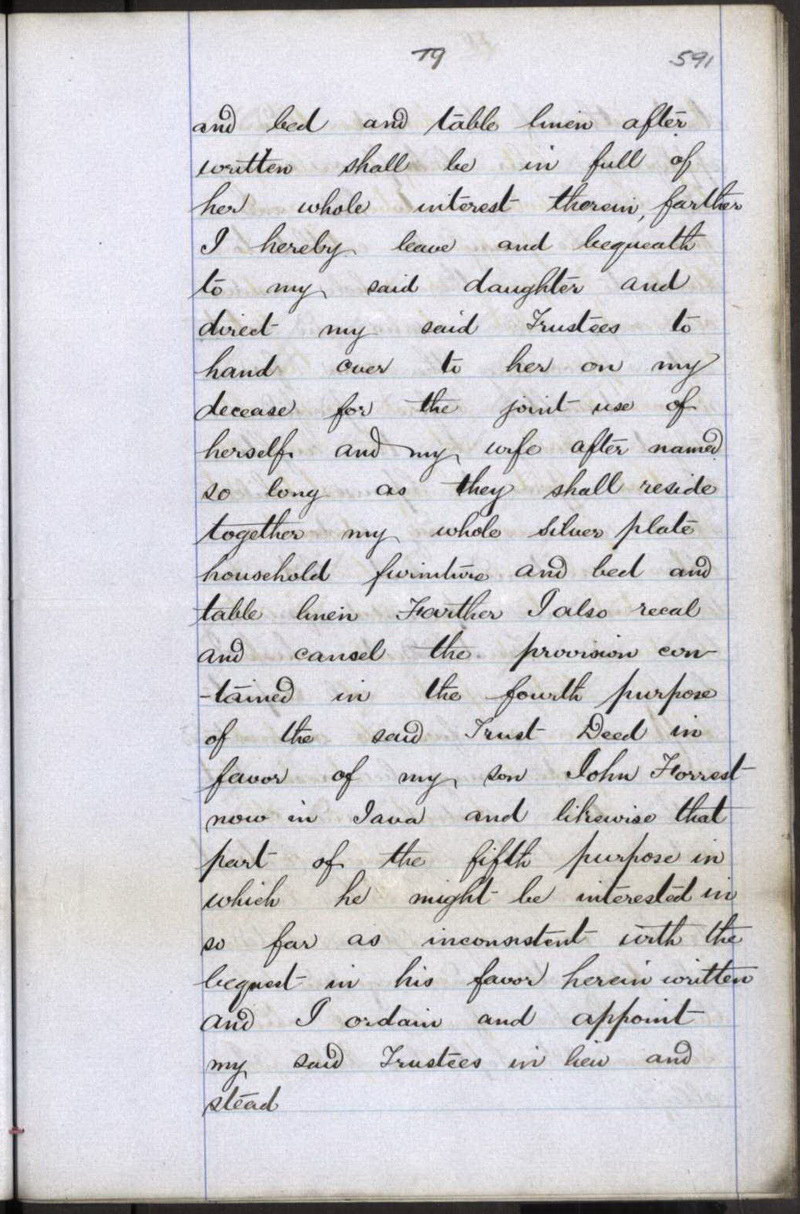 79 591
and bed and table linen after
written shall be in full of
her whole interest therein, farther
I hereby leave and bequeath
to my said daughter and
direct my said Trustees to
hand over to her on my
decease for the joint use of
herself and my wife after named
so long as they shall reside
together my whole Silver plate
household furiniture and bed and
table linen Farther I also recal
and cansel the provision con-
-tained in the fourth purpose
of the said Trust Deed in
favor of my son John Forrest
now in Java and likewise that
part of the fifth purpose in
which he might be interested in
so far as inconsistent with the
bequest in his favor herein written
and I ordain and appoint
my said Trustees in lieu and
stead